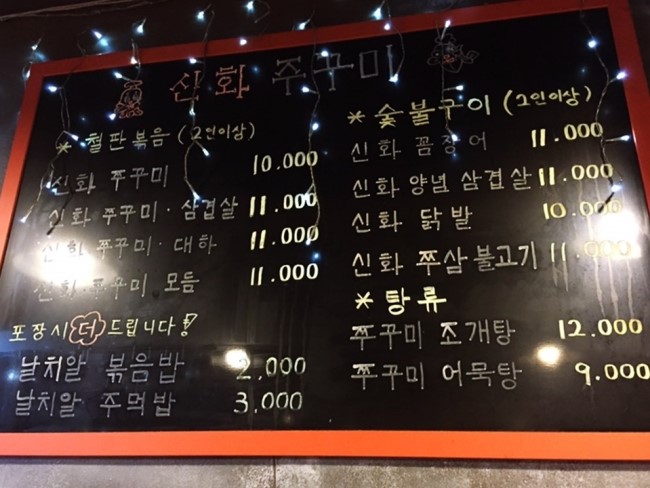 신화 쭈꾸미
* 철판볶음 (2인이상)
신화 쭈꾸미 10.000
신화 쭈꾸미·삼겹살 11.000
신화 쭈꾸미·대하 11.000
신화 쭈꾸미 모듬 11.000
포장시 더 드립니다!
날치알 볶음밥 2,000
날치알 주먹밥 3,000
* 숯불구이 (2인이상)
신화 꼼장어 11.000
신화 양념 삼겹살 11.000
신화 닭발 10.000
신화 쭈삼불고기 11.000
* 탕류
쭈꾸미 조개탕 12.000
쭈꾸미 어묵탕 9.000